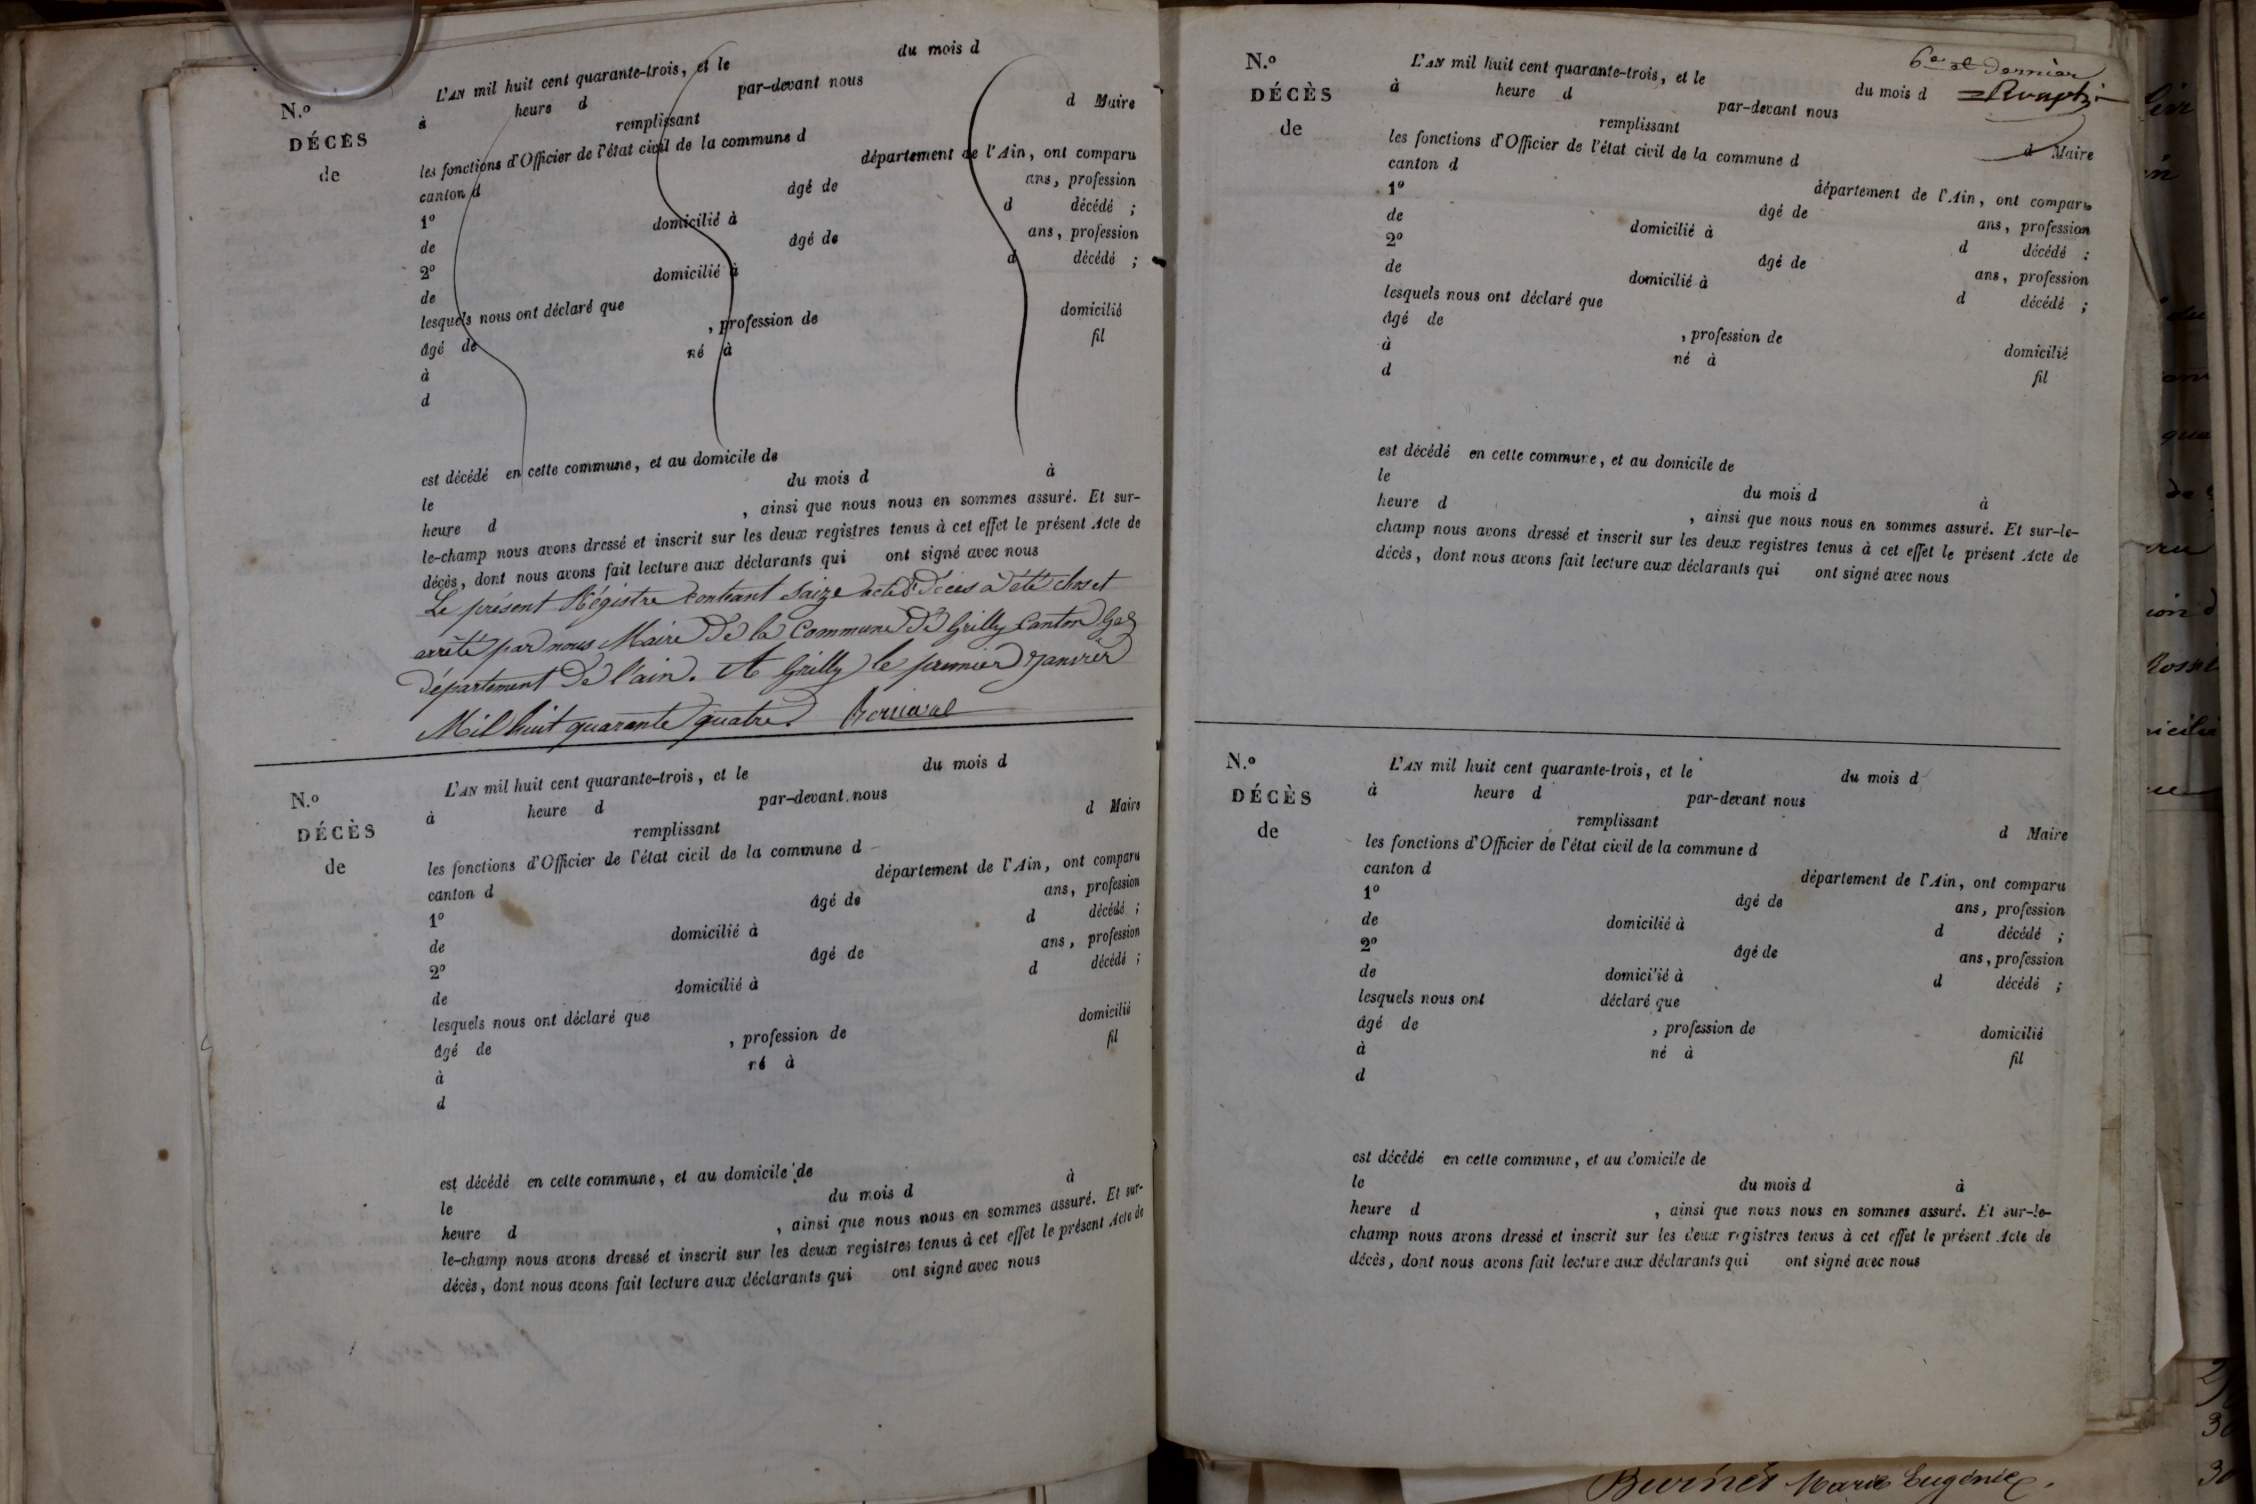 N.º
DÉCÈS
de
L'AN mil huit cent quarante-trois, et le du mois d
à heure d par-devant nous
remplissant d Maire
les fonctions d'Officier de l'état civil de la commune d
canton d département de l'Ain, ont comparu
1º âgé de ans, profession
de domicilié à d décédé ;
2º âgé de ans, profession
de domicilié à d décédé ;
lesquels nous ont déclaré que
âgé de , profession de domicilié
à né à fil
d
est décédé en cette commune, et au domicile de
le du mois d à
heure d , ainsi que nous nous en sommes assuré. Et sur-
le-champ nous avons dressé et inscrit sur les deux registres tenus à cet effet le présent Acte de
décès, dont nous avons fait lecture aux déclarants qui ont signé avec nous
Le présent Régistre Contenant Saize acte Décès à été clos et
arrêté par nous Maire De la Commune De Grilly Canton Gex
département De l'ain. A Grilly le premier Janvier
Mil huit quarante quatre.
N.º
DÉCÈS
de
L'AN mil huit cent quarante-trois, et le du mois d
à heure d par-devant nous
remplissant d Maire
les fonctions d'Officier de l'état civil de la commune d
canton d département de l'Ain, ont comparu
1º âgé de ans, profession
de domicilié à d décédé ;
2º âgé de ans, profession
de domicilié à d décédé ;
lesquels nous ont déclaré que
âgé de , profession de domicilié
à né à fil
d
est décédé en cette commune, et au domicile de
le du mois d à
heure d , ainsi que nous nous en sommes assuré. Et sur-
le-champ nous avons dressé et inscrit sur les deux registres tenus à cet effet le présent Acte de
décès, dont nous avons fait lecture aux déclarants qui ont signé avec nous
6e et dernier
N.º
DÉCÈS
de
L'AN mil huit cent quarante-trois, et le du mois d
à heure d par-devant nous
remplissant d Maire
les fonctions d'Officier de l'état civil de la commune d
canton d département de l'Ain, ont comparu
1º âgé de ans, profession
de domicilié à d décédé ;
2º âgé de ans, profession
de domicilié à d décédé ;
lesquels nous ont déclaré que
âgé de , profession de domicilié
à né à fil
d
est décédé en cette commune, et au domicile de
le du mois d à
heure d , ainsi que nous nous en sommes assuré. Et sur-le-
champ nous avons dressé et inscrit sur les deux registres tenus à cet effet le présent Acte de
décès, dont nous avons fait lecture aux déclarants qui ont signé avec nous
N.º
DÉCÈS
de
L'AN mil huit cent quarante-trois, et le du mois d
à heure d par-devant nous
remplissant d Maire
les fonctions d'Officier de l'état civil de la commune d
canton d département de l'Ain, ont comparu
1º âgé de ans, profession
de domicilié à d décédé ;
2º âgé de ans, profession
de domicilié à d décédé ;
lesquels nous ont déclaré que
âgé de , profession de domicilié
à né à fil
d
est décédé en cette commune, et au domicile de
le du mois d à
heure d , ainsi que nous nous en sommes assuré. Et sur-le-
champ nous avons dressé et inscrit sur les deux registres tenus à cet effet le présent Acte de
décès, dont nous avons fait lecture aux déclarants qui ont signé avec nous
Marie Eugénie